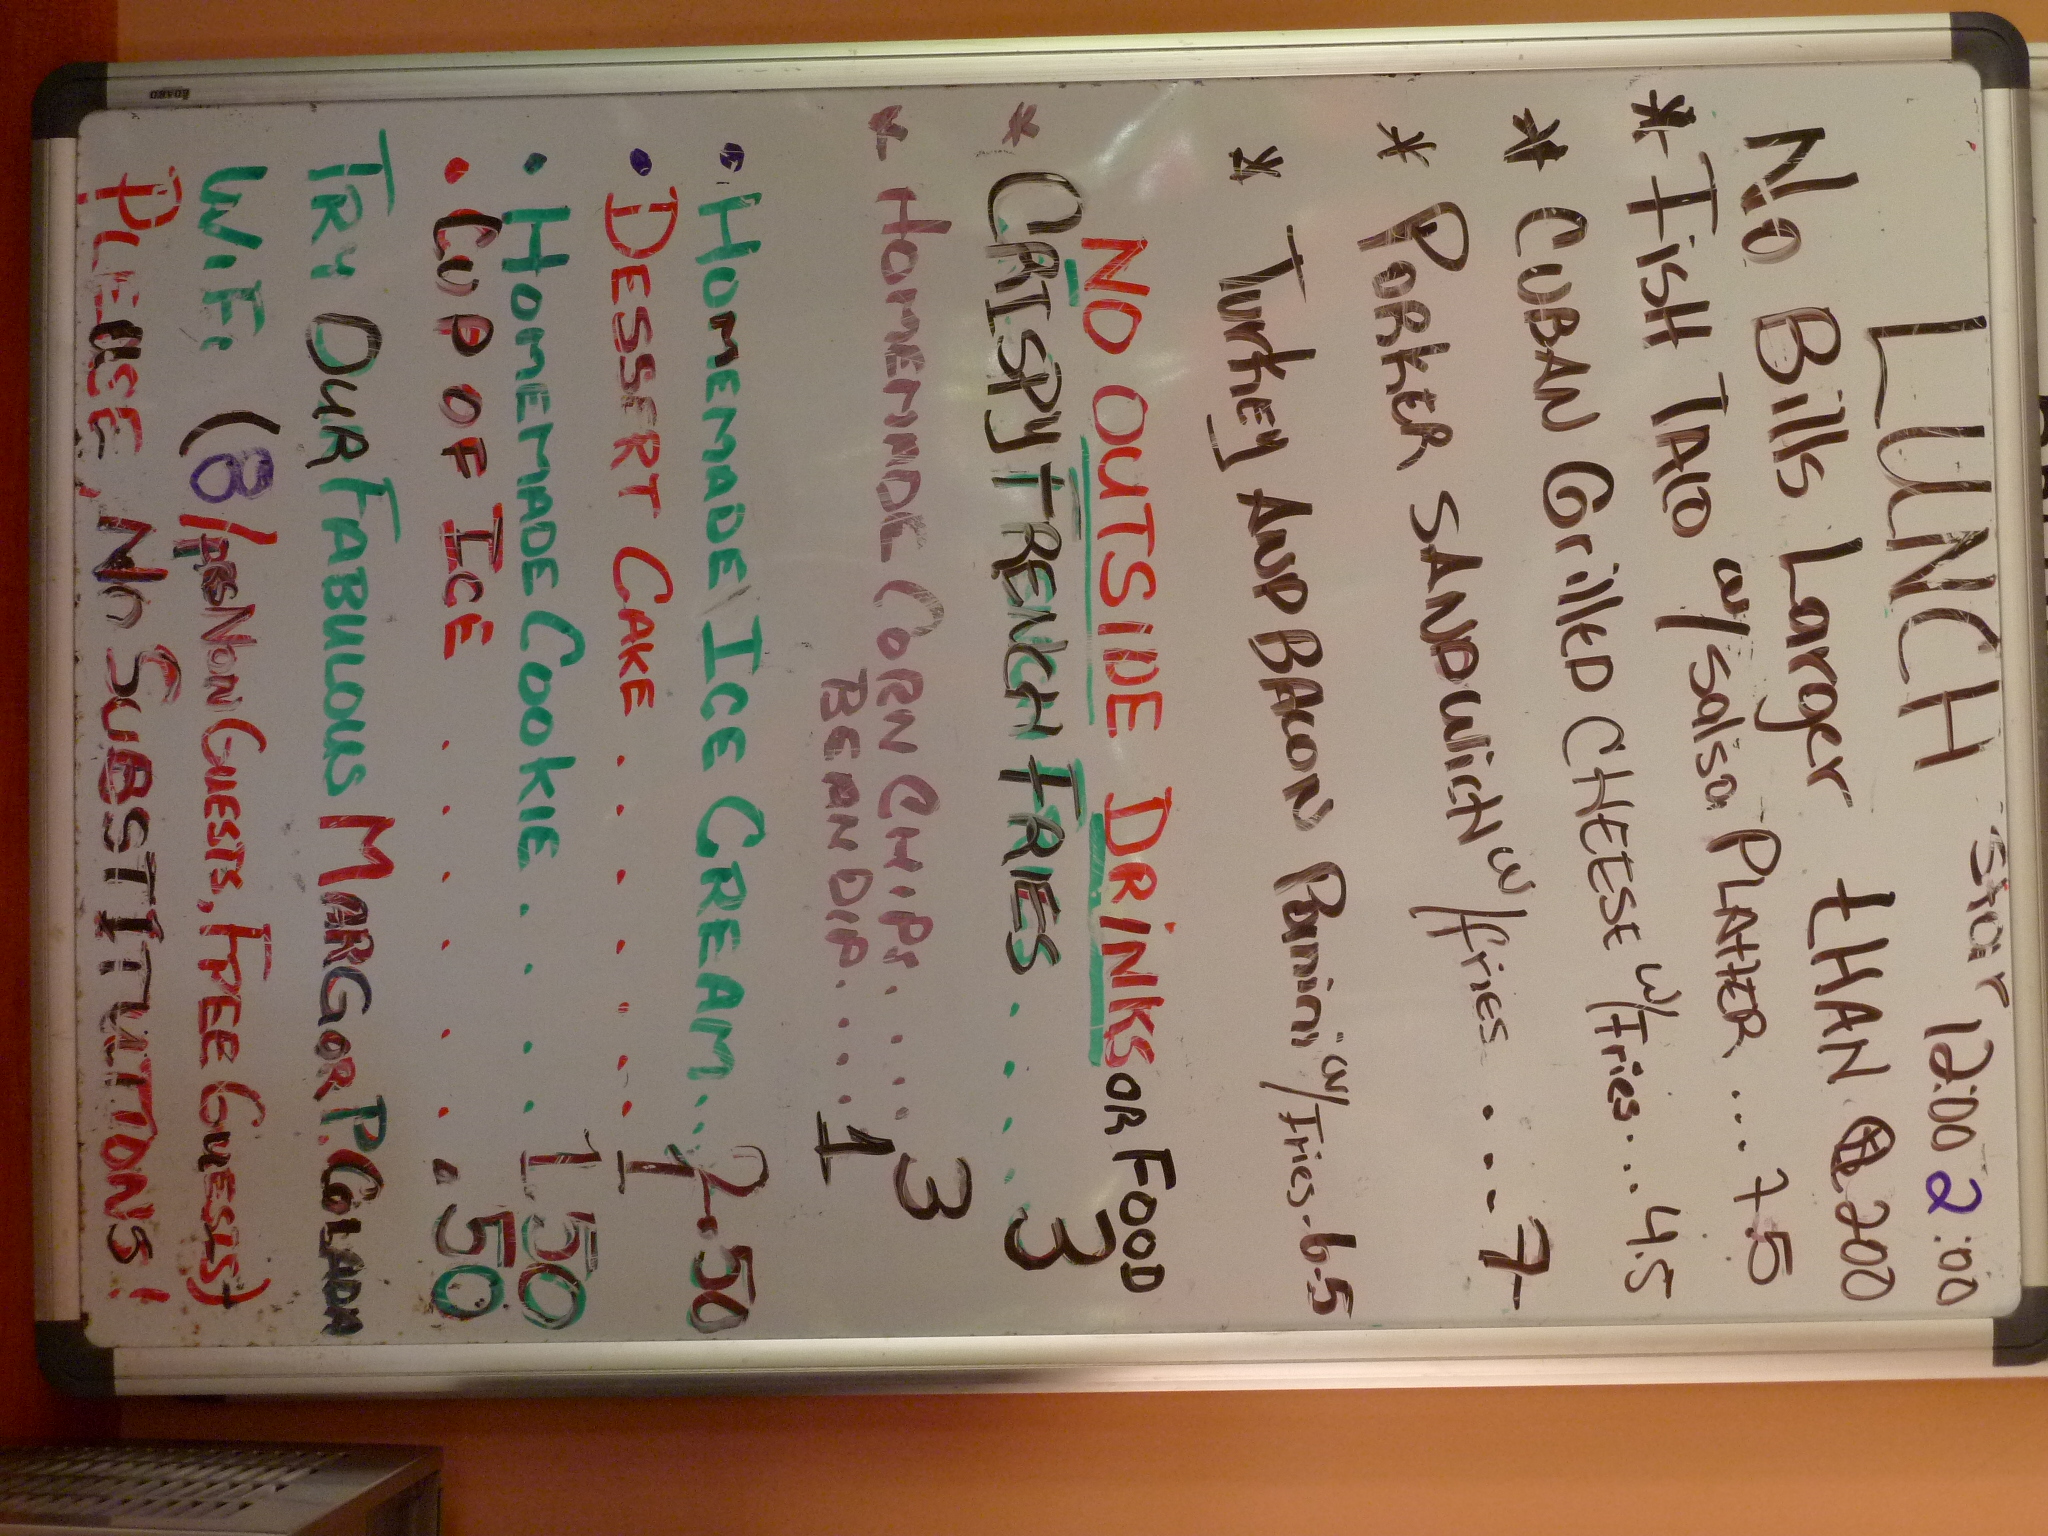 LUNCH star 12:00 2:00
No Bills Larger tHAN 200
* FisH TACO w/salsa PLATTER ... 7.5
* CUBAN GrillED CHEESE w/Fries... 4.5
* PORKER SANDwicH w/fries ... 7
* Turkey AND BACON Pannini w/Fries- 6.5
NO OUTSIDE DRiNKS OR FOOD
* CRISPY FRENCH FRIES .... 3
* HOMEMADE CORN CHiPS ..... 3
BEAN DIP..... 1
• HOMEMADE ICE CREAM... 2.50
• DESSERT CAKE ...... 1
• HOMEMADE COOKIE .... 1.50
• CUP OF ICE ....... .50
TRY OUR FABULOUS MARG OR P. COLADA
WiFi (8/ NON GUESTS. FREE GUESTS)
PLEASE NO SUBSTITUTIONS!